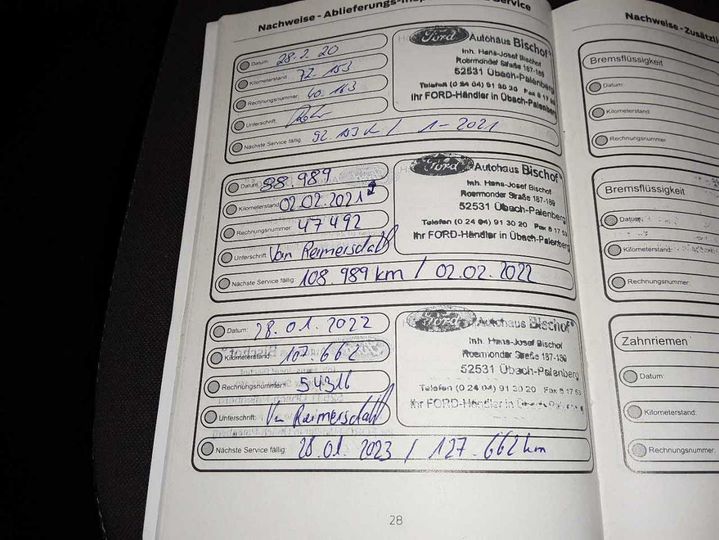 Nachweise - Ablieferungs-Insp Service
Datum: 28.2.20
Kilometerstand: 72.153
Rechnungsnummer: 40.163
Unterschrift:
Nächste Service fällig: 92 153 K / 1-2021
Ford Autohaus Bischof
Inh. Hans-Josef Bischof
Roermonder Straße 187-189
52531 Übach-Palenberg
Telefon (0 24 04) 91 30 20 Fax 8 17
Ihr FORD-Händler in Übach-Palenberg
Datum: 88.989
Kilometerstand: 02.02.2021
Rechnungsnummer: 47492
Unterschrift: Van Reimersdahl
Nächste Service fällig: 108.989 km / 02.02.2022
Ford Autohaus Bischof
Inh. Hans-Josef Bischof
Roermonder Straße 187-189
52531 Übach-Palenberg
Telefon (0 24 04) 91 30 20 Fax 8 17 53
Ihr FORD-Händler in Übach-Palenberg
Datum: 28.01.2022
Kilometerstand: 107.662
Rechnungsnummer: 54316
Unterschrift: Van Reimersdahl
Nächste Service fällig: 28.01.2023 / 127.662 km
Ford Autohaus Bischof
Inh. Hans-Josef Bischof
Roermonder Straße 187-189
52531 Übach-Palenberg
Telefon (0 24 04) 91 30 20 Fax 8 17 53
Ihr FORD-Händler in Übach-Palenberg
28
Nachweise - Zusätzli
Bremsflüssigkeit
Datum:
Kilometerstand
Rechnungsnummer
Bremsflüssigkeit
Datum:
Kilometerstand:
Rechnungsnummer:
Zahnriemen
Datum:
Kilometerstand:
Rechnungsnummer: